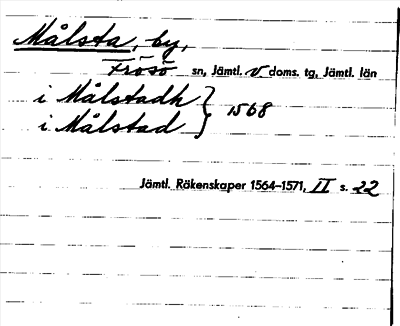 Målsta, by,
Frösö sn, Jämtl. v doms. tg, Jämtl. län
i Målstadh } 1568
i Målstad
Jämtl. Räkenskaper 1564–1571, II s. 22